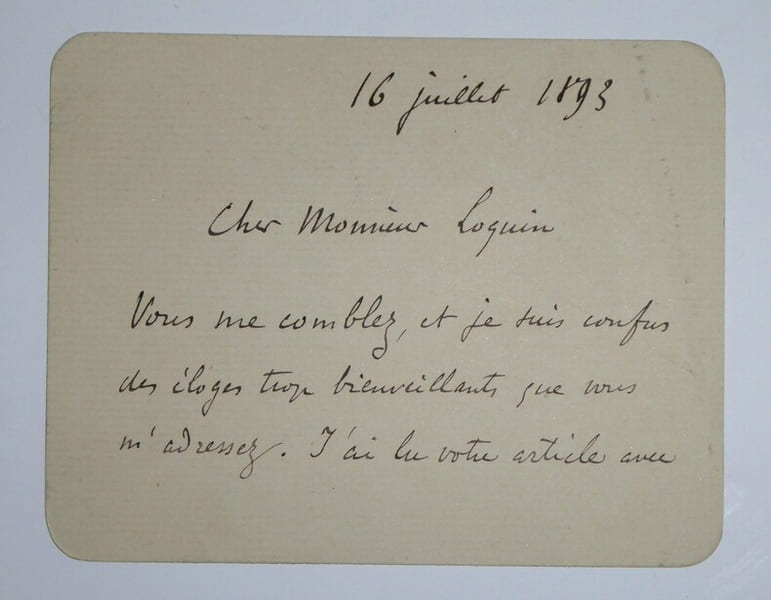 16 juillet 1893
Cher Monsieur Loquin
Vous me comblez, et je suis confus
des éloges trop bienveillants que vous
m'adressez. J'ai lu votre article avec